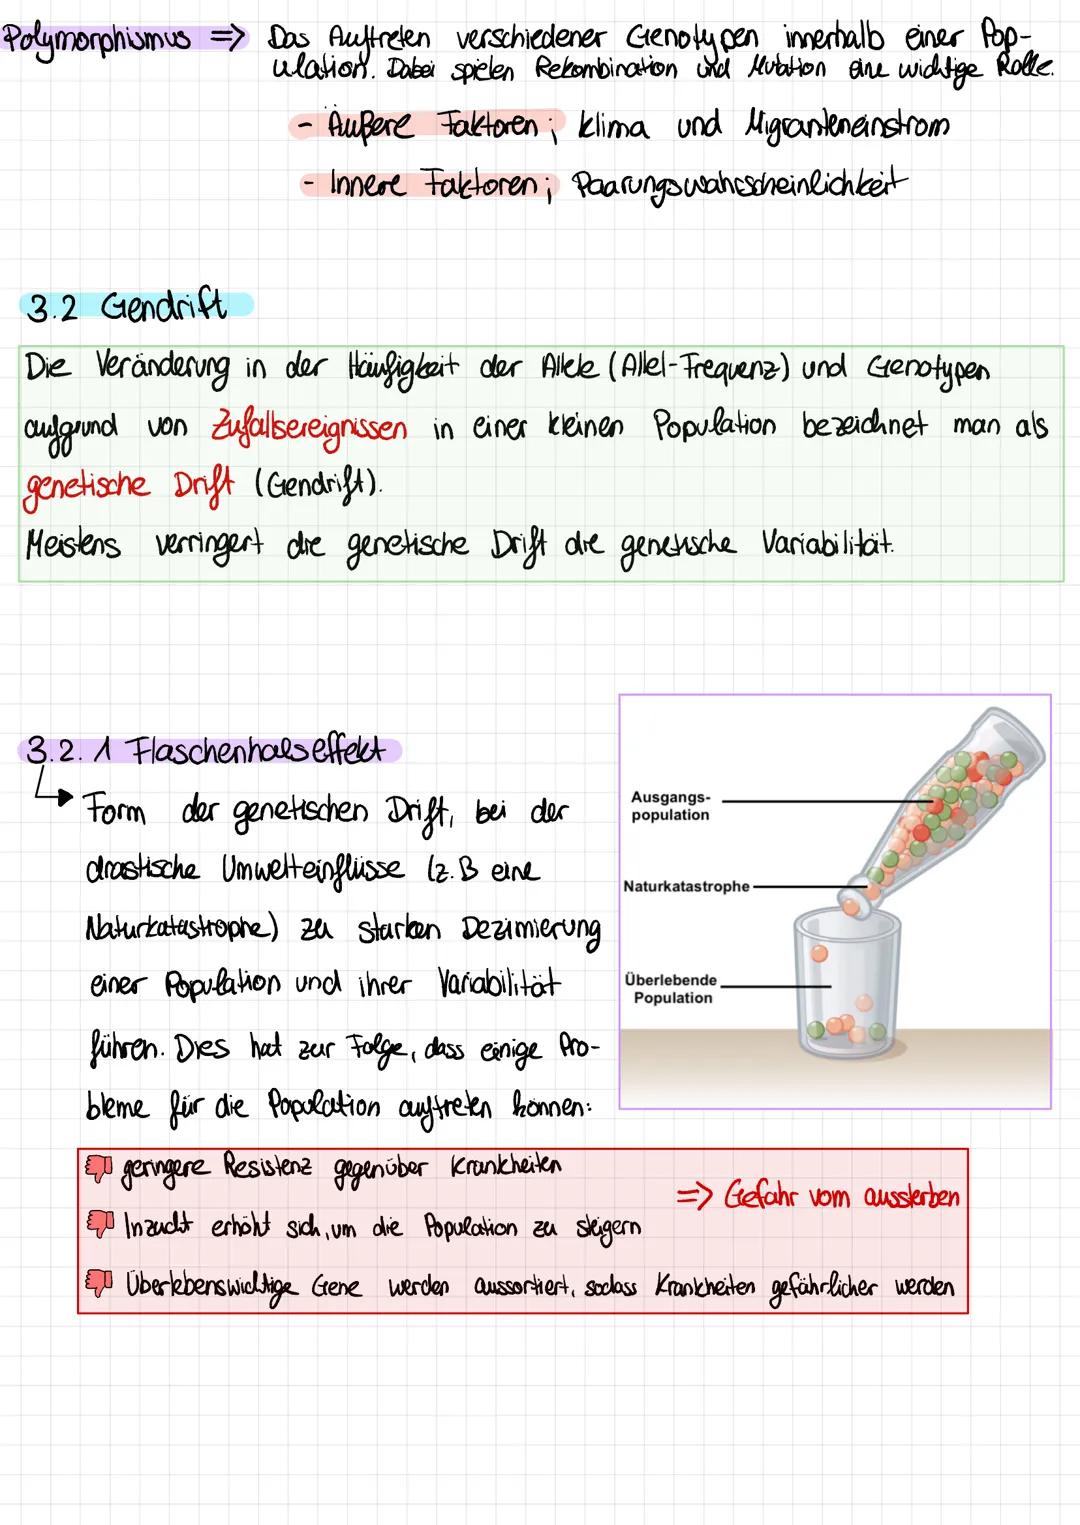 Polymorphismus => Das Auftreten verschiedener Genotypen innerhalb einer Pop-
ulation. Dabei spielen Rekombination und Mutation eine wichtige Rolle.
- Äußere Faktoren; klima und Migranteneinstrom
- Innere Faktoren; Paarungswahrscheinlichkeit
3.2 Gendrift
Die Veränderung in der Häufigkeit der Allele (Allel-Frequenz) und Genotypen
aufgrund von Zufallsereignissen in einer kleinen Population bezeichnet man als
genetische Drift (Gendrift).
Meistens verringert die genetische Drift die genetische Variabilität.
3.2.1 Flaschenhalseffekt
Form der genetischen Drift, bei der
drastische Umwelteinflüsse (z.B eine
Naturkatastrophe) zu starken Dezimierung
einer Population und ihrer Variabilität
führen. Dies hat zur Folge, dass einige Pro-
bleme für die Population auftreten können:
Ausgangs-
population
Naturkatastrophe
Überlebende
Population
geringere Resistenz gegenüber Krankheiten
=> Gefahr vom aussterben
Inzucht erhöht sich, um die Population zu steigern
Überlebenswichtige Gene werden aussortiert, sodass Krankheiten gefährlicher werden